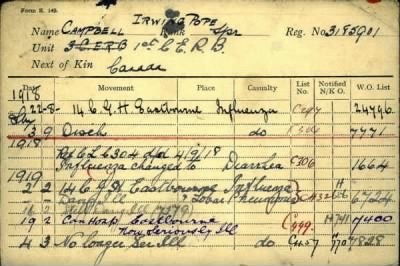 Form B. 103.
Irwing Pope
Name CAMPBELL Rank Spr Reg. No. 3185901
Unit 3 C.E.R.B 1st C.E.R.B.
Next of Kin Canada
Date Movement Place Casualty List No. Notified N/K O. W.O. List
1918
22-8- 14 C.G.H Eastbourne Influenza C297 24796
13 9 Disch do 7771
1918
Ref C.L C304 dpd 4/9/18
Influenza changed to Diarrhea C306 1664
1919
2 2 14 C.G.H Eastbourne Influenza H
Dang Ill Lobar Pneumonia 6724
19 2 Con Hosp Eastbourne C499. H741 7400
Now Seriously Ill
4 3 No longer Ser Ill do 7828